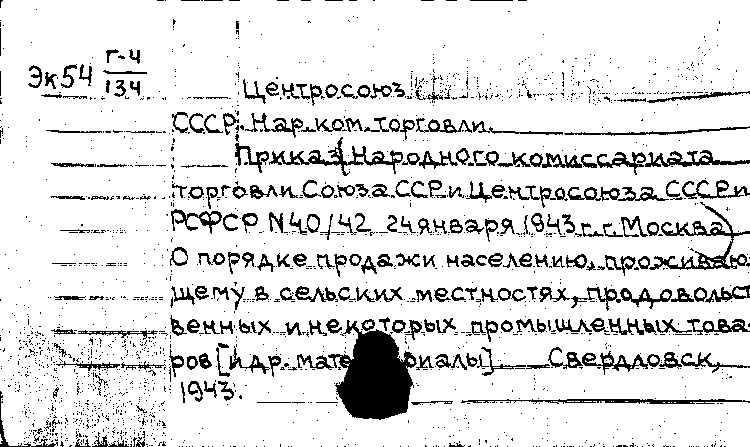 Эк54 Г-4
134
Центросоюз
СССР. Нар.ком.торговли.
Приказ Народного комиссариата
торговли Союза ССР и Центросоюза СССР и
РСФСР N40/42 24 января 1943 г. г. Москва
О порядке продажи населению, проживаю-
щему в сельских местностях, продовольст-
венных и некоторых промышленных това-
ров [и др. материалы]. Свердловск,
1943.